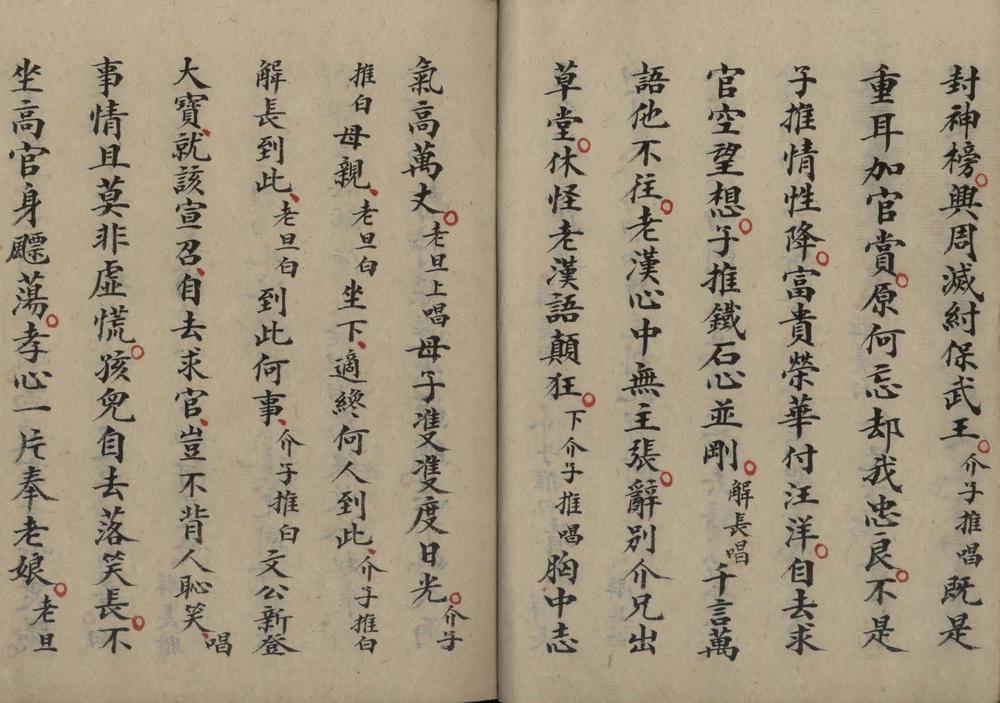 封神榜。興周滅紂保武王。介子推唱既是
重耳加官賞。原何忘却我忠良。不是
子推情性降。富貴榮華付汪洋。自去求
官空望想。子推鐵石心並剛。解長唱千言萬
語他不往。老漢心中無主張。辭别介兄出
草堂。休怪老漢語顛狂。下介子推唱胸中志
氣高萬丈。老旦上唱母子雙雙度日光。介子
推白母親、老旦白坐下、適終何人到此、介子推白
解長到此、老旦白到此何事、介子推白文公新登
大寶、就該宣召、自去求官、豈不背人恥笑、唱
事情且莫非虛慌。孩兒自去落笑長。不
坐高官身飃蕩。孝心一片奉老娘。老旦